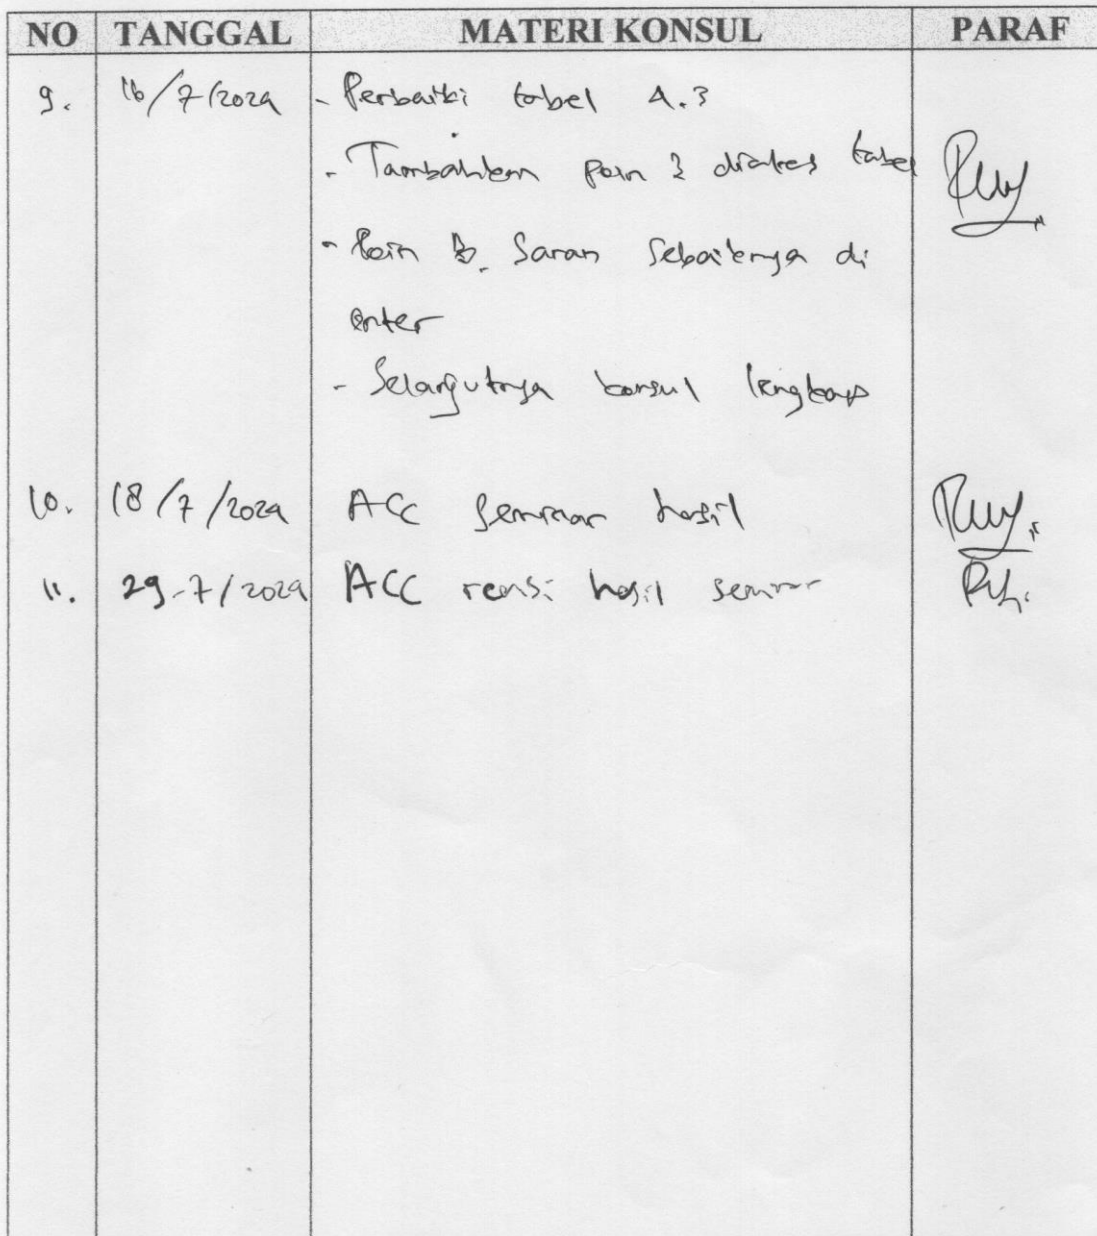 NO TANGGAL MATERI KONSUL PARAF
9. 16/7/2024 - Perbaiki tabel 4.3
- Tambahkan poin 3 diatas tabel
- Poin B. Saran sebaiknya di
enter
- Selanjutnya konsul lengkap
10. 18/7/2024 ACC seminar hasil
11. 29-7/2024 ACC revisi hasil seminar